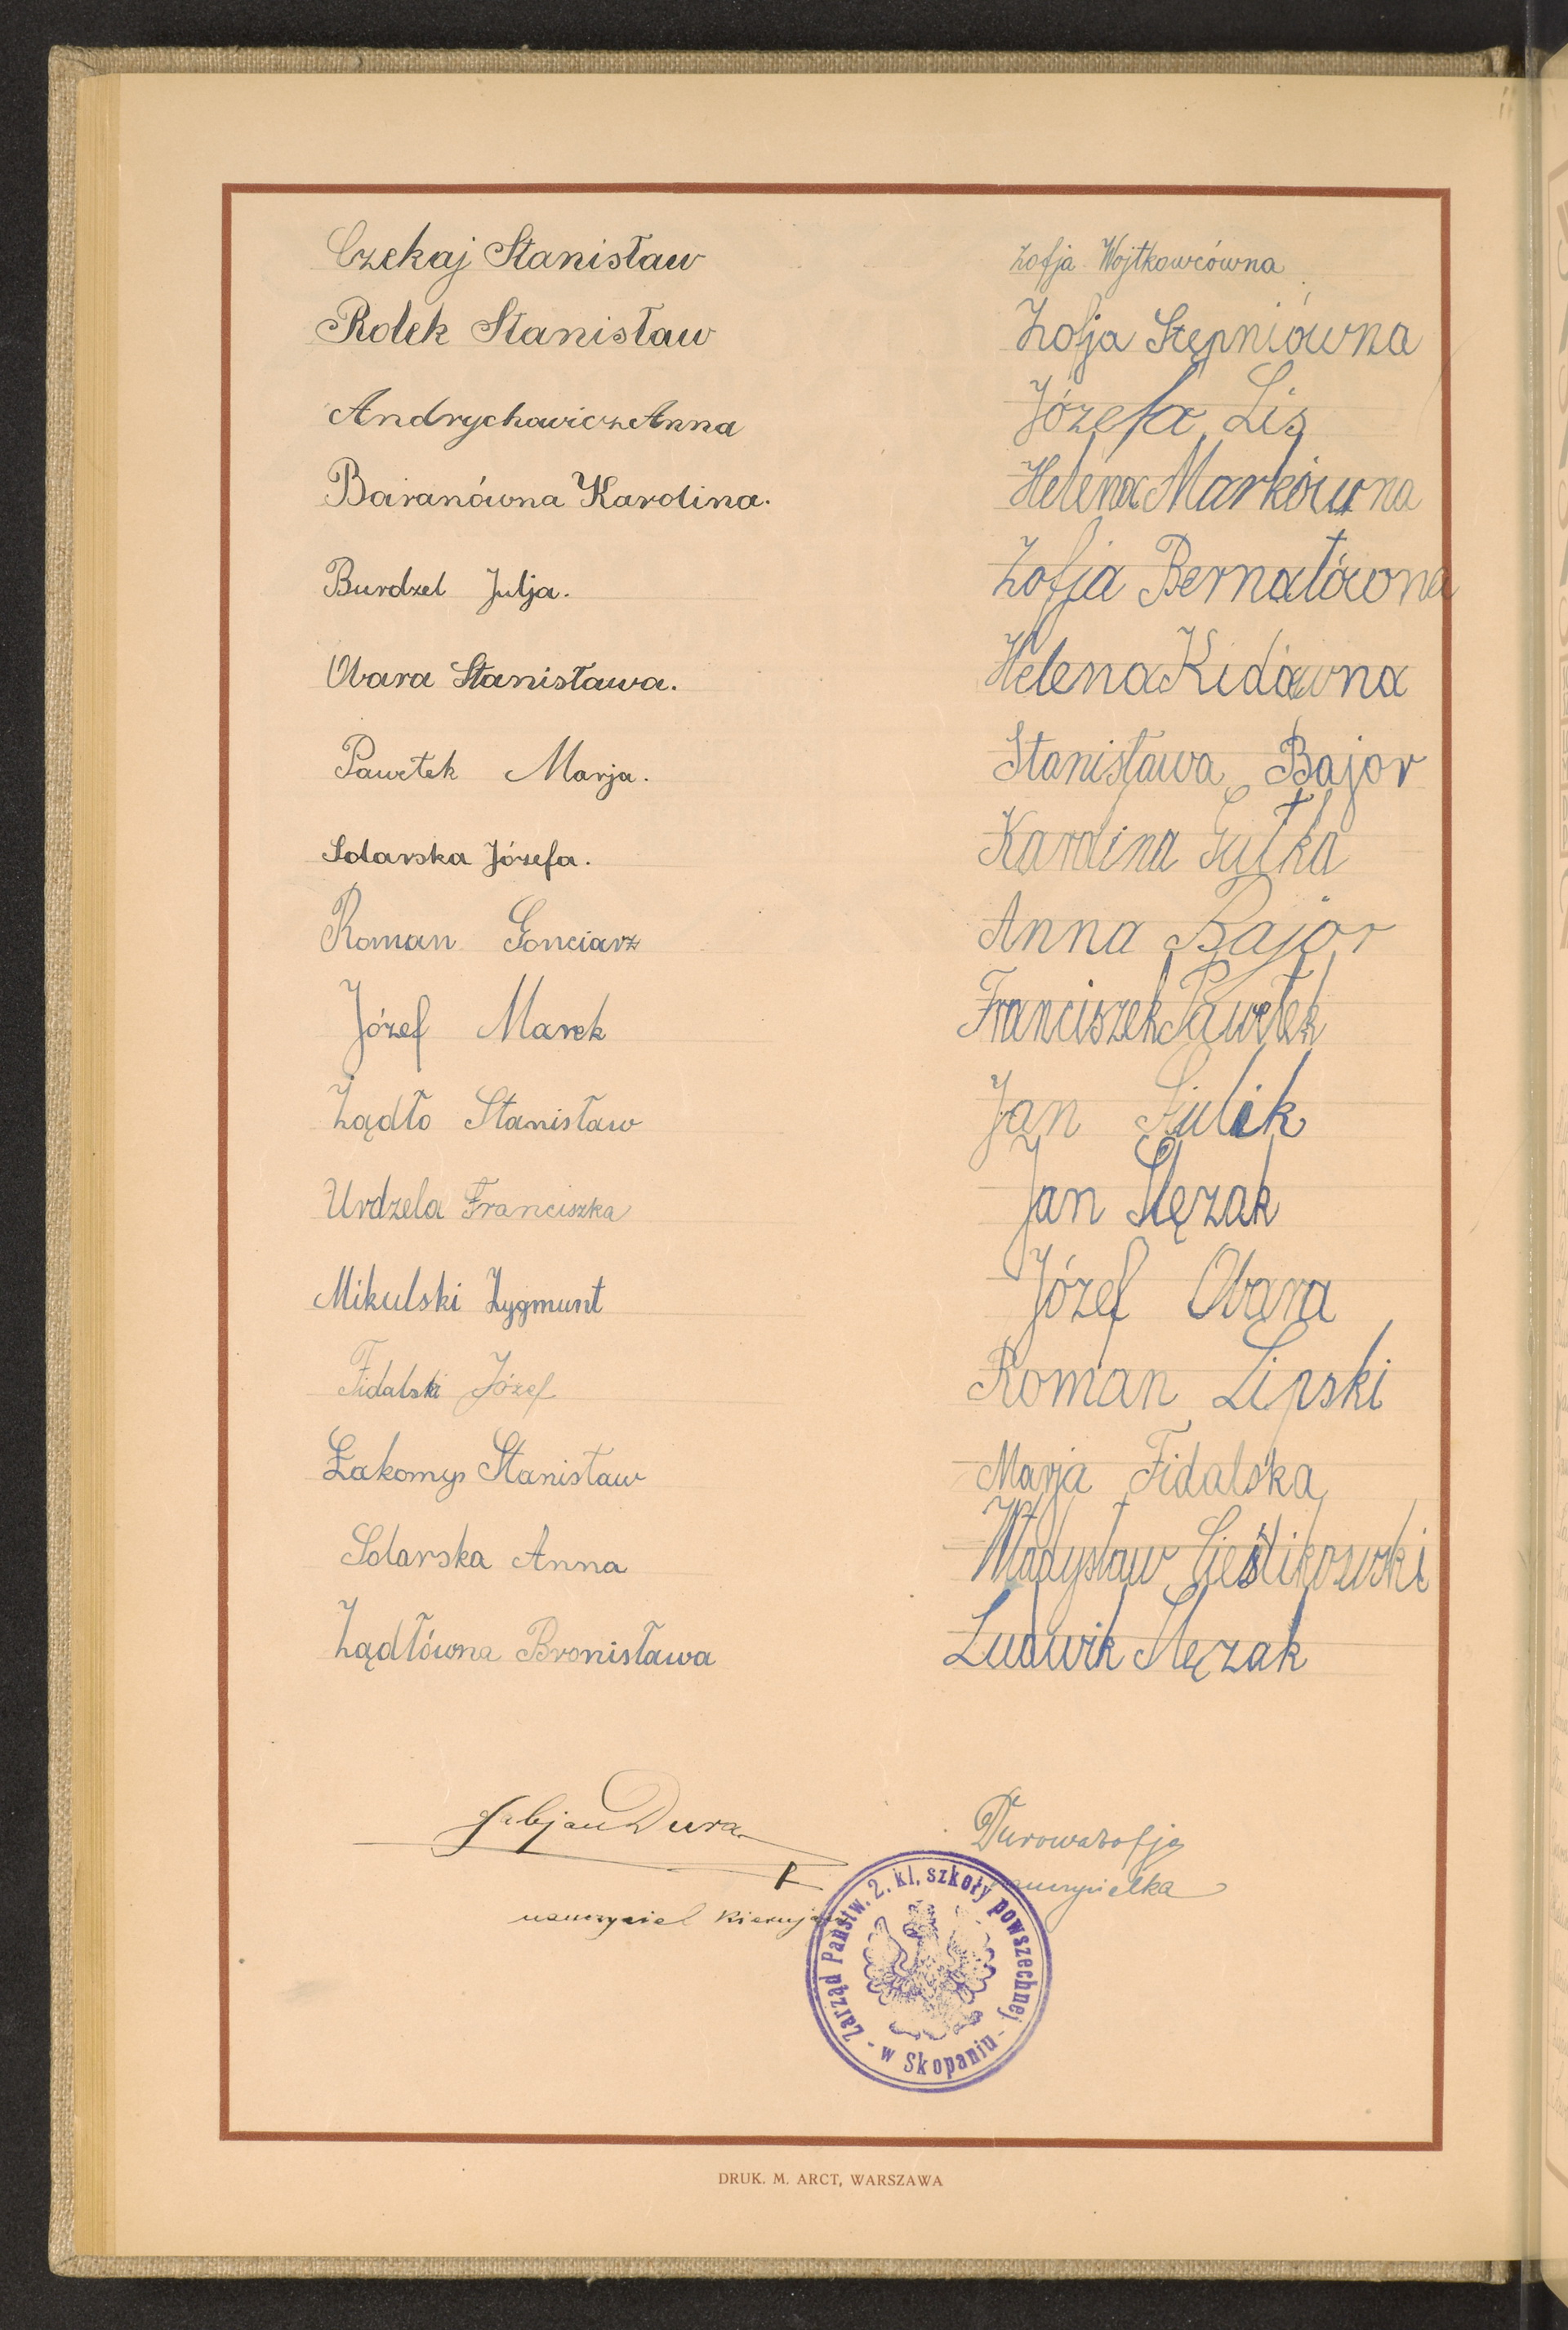 Czekaj Stanisław
Rolek Stanisław
Andrychowicz Anna
Baranówna Karolina.
Burdzel Julja.
Obara Stanisława.
Pawełek Marja.
Solarska Józefa.
Roman Gonciarz
Józef Marek
Żądło Stanisław
Urdzela Franciszka
Mikulski Zygmunt
Fidalski Józef
Łakomys Stanisław
Solarska Anna
Żądłówna Bronisława
Zofja Wojtkowcówna
Zofja Stępniówna
Józefa Lis
Helena Markówna
Zofja Bernatówna
Helena Kidówna
Stanisława Bajor
Karolina Gutka
Anna Bajor
Franciszek Pawełek
Jan Sulik
Jan Ślęzak
Józef Obara
Roman Lipski
Marja Fidalska
Władysław Cieślikowski
Ludwik Ślęzak
Fabjan Dura
nauczyciel kierujący
Durowa Zofja
nauczycielka
Zarząd Państw. 2. kl. szkoły powszechnej
- w Skopaniu -
DRUK. M. ARCT, WARSZAWA